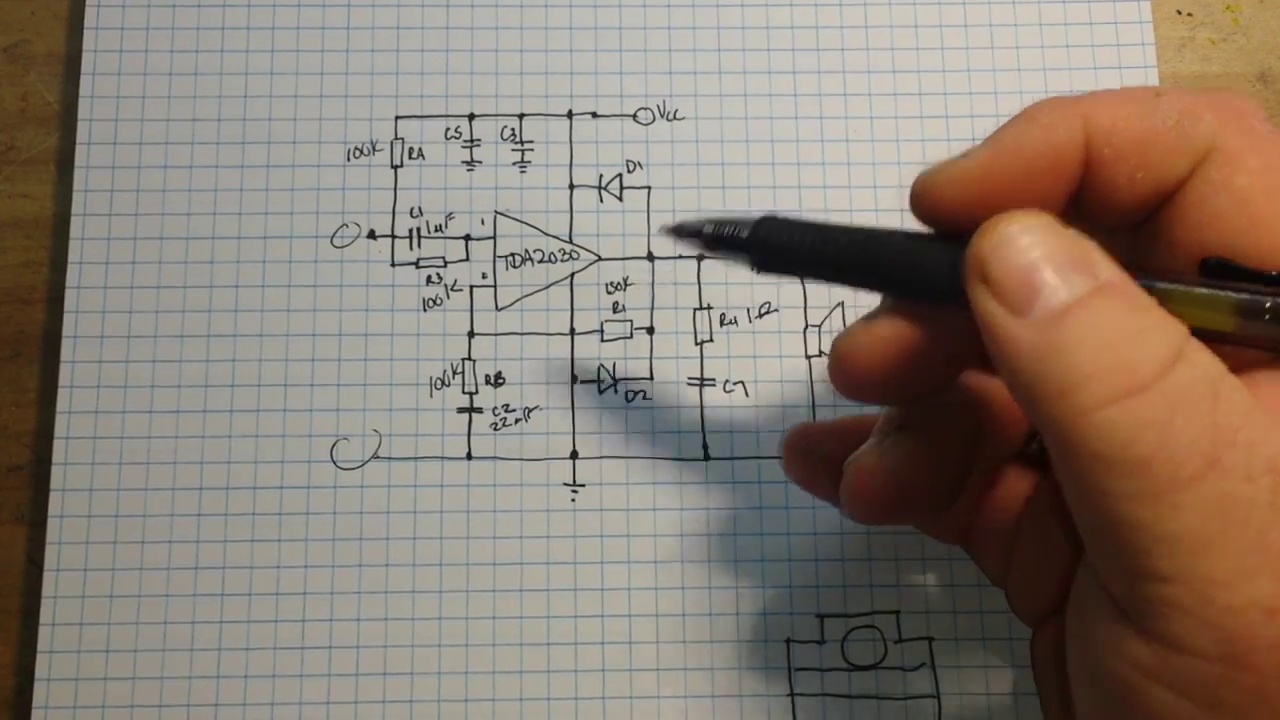 Vcc
100K RA
C5
C3
D1
C1
1uF
1
TDA2030
2
R3
100K
150K
R1
R4 1Ω
100K RB
C2
22uF
D2
C7